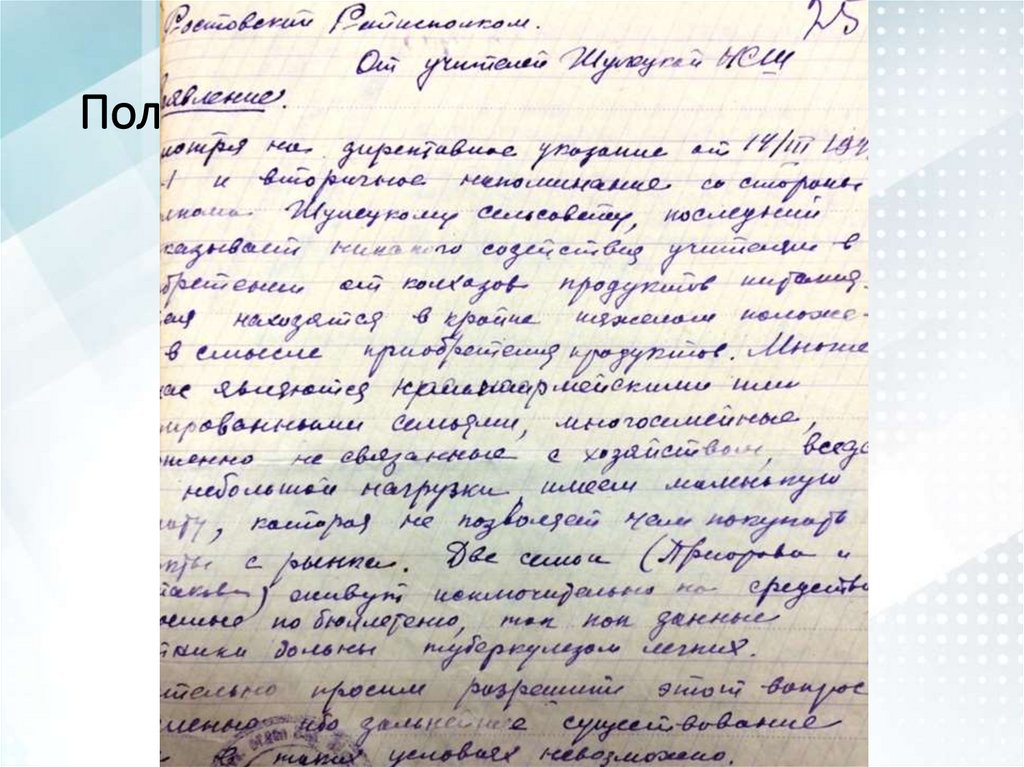 Ростовский Райисполком.
25
От учителей Шулецкой НСШ
Пол
явление.
мотря на директивное указание от 14/III 194
1 и вторичное напоминание со стороны
лкома Шулецкому сельсовету, последний
казывает никакого содействия учителям в
бретении от колхозов продуктов питания.
находятся в крайне тяжелом положе-
в смысле приобретения продуктов. Многие
нас являются красноармейскими или
ированными семьями, многосемейные,
ршенно не связанные с хозяйством, вседс
небольшой нагрузки имеем маленькую
лату, которая не позволяет нам покупать
кты с рынка. Две семьи (Приорова и
такова) живут исключительно на средства
по бюллетеню, так как данные
тники больны туберкулезом легких.
ительно просим разрешить этот вопрос
менно ибо дальнейшее существование
в таких условиях невозможно.